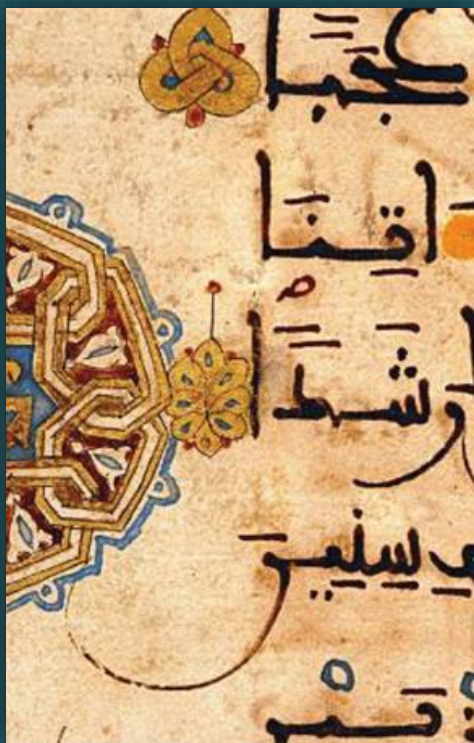 عَجَبًا
اتِنَا
رَشَدًا
سِنِينَ